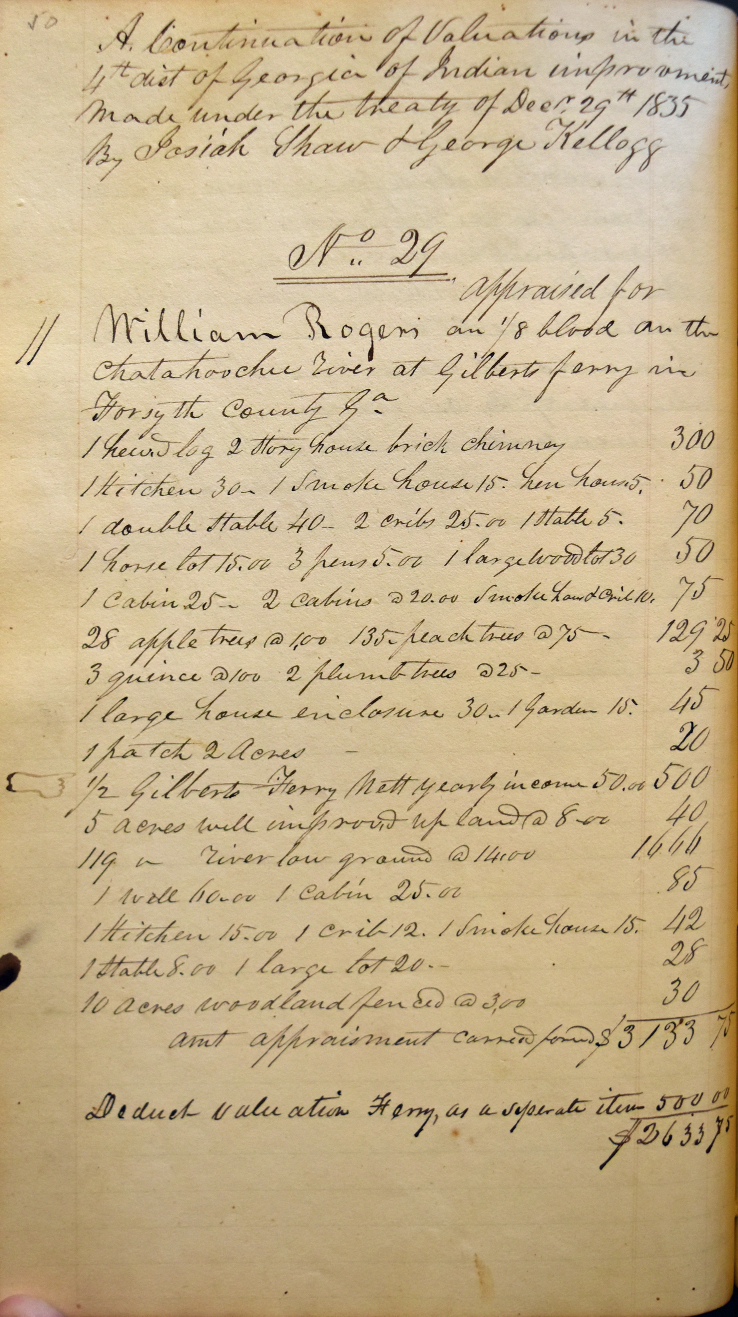 50
A Continuation of Valuations in the
4th dist of Georgia of Indian improvment,
Made under the treaty of Decr. 29th 1835
By Josiah Shaw & George Kellogg
No. 29
appraised for
11 William Rogers an 1/8 blood on the
Chatahoochee River at Gilberts ferry in
Forsyth County Ga
1 hewd log 2 story house brick chimney 300
1 Kitchen 30- 1 Smoke house 15. hen house 5. 50
1 double stable 40- 2 cribs 25.00 1 stable 5. 70
1 horse lot 15.00 3 pens 5.00 1 large wood lot 30 50
1 cabin 25- 2 cabins @ 20.00 Smoke house & crib 10. 75
28 apple trees @ 1,00 135- peach trees @ 75- 129 25
3 quince @ 100 2 plumb trees @ 25- 3 50
1 large house enclosure 30.. 1 Garden 15. 45
1 patch 2 Acres - 20
1/2 Gilberts Ferry Nett yearly income 50.00 500
5 acres well improvd up land @ 8-00 40
119 " River low ground @ 14.00 1666
1 well 60.00 1 cabin 25.00 85
1 Kitchen 15.00 1 crib 12. 1 Smoke house 15. 42
1 Stable 8.00 1 large lot 20.- 28
10 acres woodland fenced @ 3,00 30
amt appraisment carried forwd $3133 75
Deduct valuation Ferry, as a seperate item 500 00
$2633 75